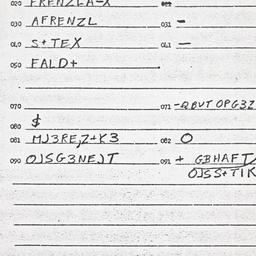 020 FRENZLA-X
030 AFRENZL 031 -
040 S+TEX 041 -
050 FALD+
070 071 -QBUTOPG3Z
080 $
081 MJ3RE,Z+K3 082 O
090 OJSG3NEJT 091 + GBHAFT
OJSS+TIK